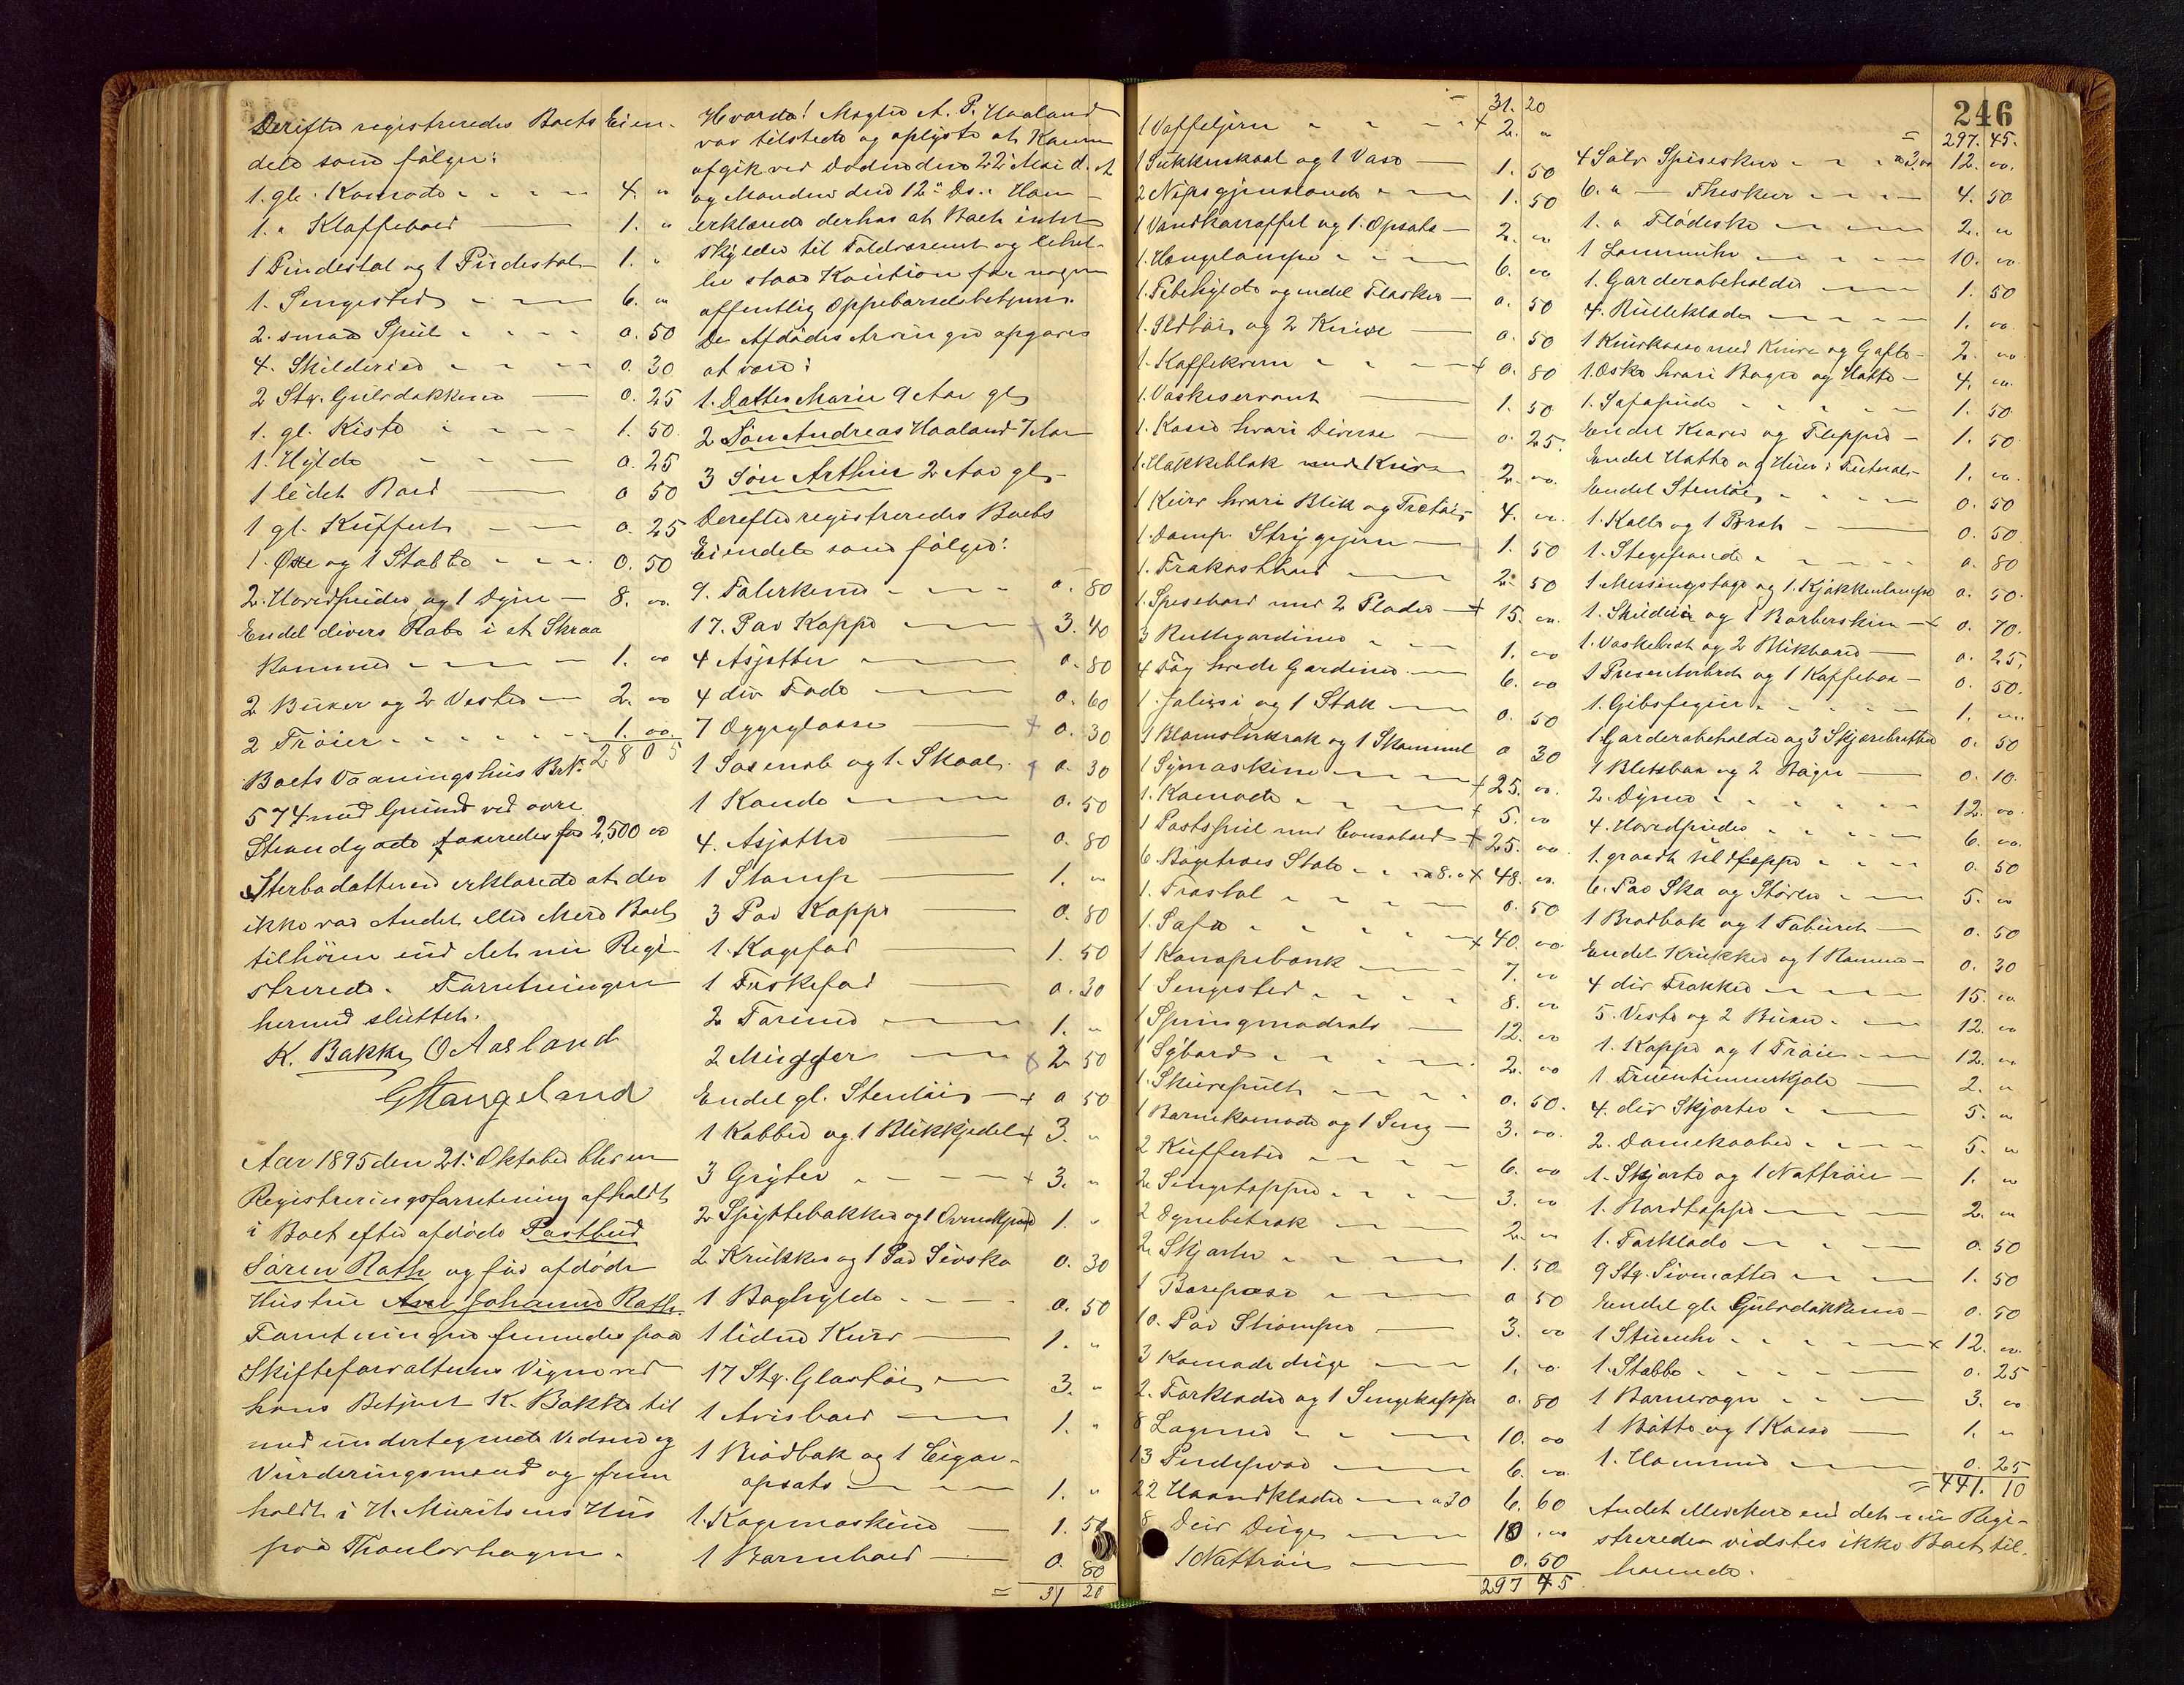 Derefter registreredes Boets Eien-
dele som følger:
1. gl. Komode 4. "
1. " Klaffebord 1. "
1 Pindestol og 1 Pidestal 1. "
1. Sengested 6. "
2. smaa Speil 0. 50
4. Skilderier 0. 30
2 Stk. Gulvdækkener 0. 25
1. gl. Kiste 1. 50
1. Hylde 0. 25
1 lidet Bord 0 50
1 gl. Kuffert 0. 25
1. Øxe og 1 Stabbe 0. 50
2. Hovedpuder og 1 Dyne 8. oo
Endel divers Rabs i et Skraa
Kammer 1. oo
2 Buxer og 2 Veste 2. oo
2 Trøier 1. oo
28 05
Boets Vaaningshus Br.
574 med Grund ved øvre
Strandgade taxeredes for 2,500 oo
Sterbodatteren erklærede at der
ikke var Andet eller Mere Boet
tilhørende end det nu Regi-
strerede. Forretningen
hermed sluttet.
K. Bakke O Aasland
G Stangeland
Aar 1895 den 21. Oktober blev en
Registreringsforretning afholdt
i Boet efter afdøde Postbud
Søren Rath og før afdøde
Hustru Johanne Rath.
Forretningen fremmedes paa
Skifteforvalterens Vegne ved
hans Betjent K. Bakke til
med undertegnede Vidner og
Vurderingsmænd og frem
holdt i H. Mauritzens Hus
paa Thaulorhagen.
Hvorda! Mægler A. P. Haaland
var tilstede og oplyste at Konen
afgik ved Døden den 22 Mai d. A
og Manden den 12" Ds. Han
erklærede derhos at Boet intet
skylder til Toldvæsenet og heller
ei staar Kaution for nogen
offentlig Oppebørselsbetjent.
De Afdødes Arvinger opgaves
at være:
1. Datter Marie 9 Aar gl.
2 Søn Andreas Haaland 7 Aar
3 Søn Arthur 2 Aar gl.
Derefter registreredes Boets
Eiendele som følger:
9. Talerkener 0. 80
17. Par Kopper 3. 40
4 Asjetter 0. 80
4 div Fade 0. 60
7 Æggeglasse 0. 30
1 Sosenob og 1. Skaal 0. 30
1 Kande 0. 50
4. Asjetter 0. 80
1 Stamp 1. "
3 Par Kopper 0. 80
1. Kagefad 1. 50
1 Fiskefad 0. 30
2 Tariner 1. "
2 Mugger 2 50
Endel gl. Stentøi 0 50
1 Kobber og 1 Blikkjedel 3. "
3 Gryter 3. "
2 Spyttebakker og 1 1. "
2 Krukker og 1 Par Sivsko 0. 30
1 Baghylde 0. 50
1 liden Kurv 1. "
17 Stk. Glastøi 3. "
1 Avisbord 1. "
1 Brødbak og 1 Cigar-
opsats 1. "
1. Kagemaskine 1. 50
1 Barnebord 0. 80
= 31 20
31. 20
1 Vaffeljern 2. "
1 Sukkerskaal og 1 Vase 1. 50
2 Nipsgjenstande 1. 50
1 Vandkaraffel og 1. Opsats 2. oo
1. Hængelampe 6. oo
1. Pibehylde og endel Flasker 0. 50
1. Ildtøi og 2 Knive 0. 50
1. Kaffekvern 0. 80
1. Vaskeservant 1. 50
1. Kasse hvori Diverse 0. 25.
1. Hakkeblok med Kniv 2. oo.
1 Kurv hvori Blik og Trætøi 4. oo.
1. Damp. Strygejern 1. 50
1. Frakost 2. 50
1. Spisebord med 2 Plader 15. oo.
3 Rullegardiner 1. oo
4 Fag hvide Gardiner 6. oo
1. Jalusi og 1 Stok 0. 50
1 Blomsterkrak og 1 Skammel 0 30
1 Symaskine 25. oo.
1. Komode 5. oo
1 Postspeil med Consolbord 25. oo
6 Bøgetræes Stole a 8. " 48. oo.
1. Træstol 0. 50
1. Sofa 40. oo.
1 Kanapebænk 7. oo
1 Sengested 8. oo
1 Springmadrats 12. oo
1 Sybord 2. oo
1. Skrivepult 0. 50.
1 Barnekomode og 1 Seng 3. oo.
2 Kufferter 6. oo
2. Sengetepper 3. oo
2 Dynebetræk 2. "
2. Skjorter 1. 50
1 Barepose 0 50
10. Par Strømper 3. oo
3 Komodeduge 1. oo.
2. Forklæder og 1 Sengekappe 0. 80
8 Lagener 10. oo
13 Pudevaar 6. oo
22 Haandklæder a 30 6. 60
8 Duge 10. oo
1 Nattrøie 0. 50
297 45
246
= 297. 45.
4 Sølv Spiseskeer a 3. oo 12. oo.
6. " Theskeer 4. 50
1. " Flødeske 2. "
1 Lommeuhr 10. oo
1. Garderobeholder 1. 50
4. Rulleklæder 1. oo
1 Knivkasse med Knive og Gafler 2. oo
1. Æske hvori Bøger og Hatte 4. oo
1. Sofapude 1. 50
Endel Kraver og Flipper 1. 50
Endel Hatte og Huer i Futteral 1. oo
Endel Stentøi 0. 50
1. Kolle og 1 Bræt 0. 50
1. Stegepande 0. 80
1 Messingstage og 1. Kjøkkenlampe 0. 50.
1. Skilderi og 1 Barberskrin 0. 70.
1. Vaskebræt og 2 Blikbøtter 0. 25.
1 Presenterbræt og 1 Kaffebox 0. 50.
1. Gibsfigur 1. oo.
1 Garderobeholder og 3 Skjærebretter 0. 50
1 Blikbox og 2 Bøger 0. 10.
2. Dyner 12. oo.
4. Hovedpuder 6. oo.
1. graadt Uldteppe 0. 50
6. Par Sko og Støvler 5. oo
1 Brødbak og 1 Taburet 0. 50
Endel Krukker og 1 Ramme 0. 30
4 div Frakker 15. oo
5. Veste og 2 Buxer 12. oo
1. Kappe og 1 Trøie 12. oo
1 Fruentimmerkjole 2. "
4. div Skjorter 5. "
2. Damekaaber 5. "
1. Skjorte og 1 Nattrøie 1. "
1. Bordteppe 2. "
1. Forklæde 0. 50
9 Stk. Sivmatter 1. 50
Endel gl. Gulvdækkener 0. 50
1 Stueuhr 12. oo
1. Stabbe 0. 25
1 Barnevogn 3. oo
1 Bøtte og 1 Kasse 1. "
1. Hammer 0. 25
= 441. 10
Andet eller Mere end det nu Regi-
strerede vidstes ikke Boet til-
hørende.